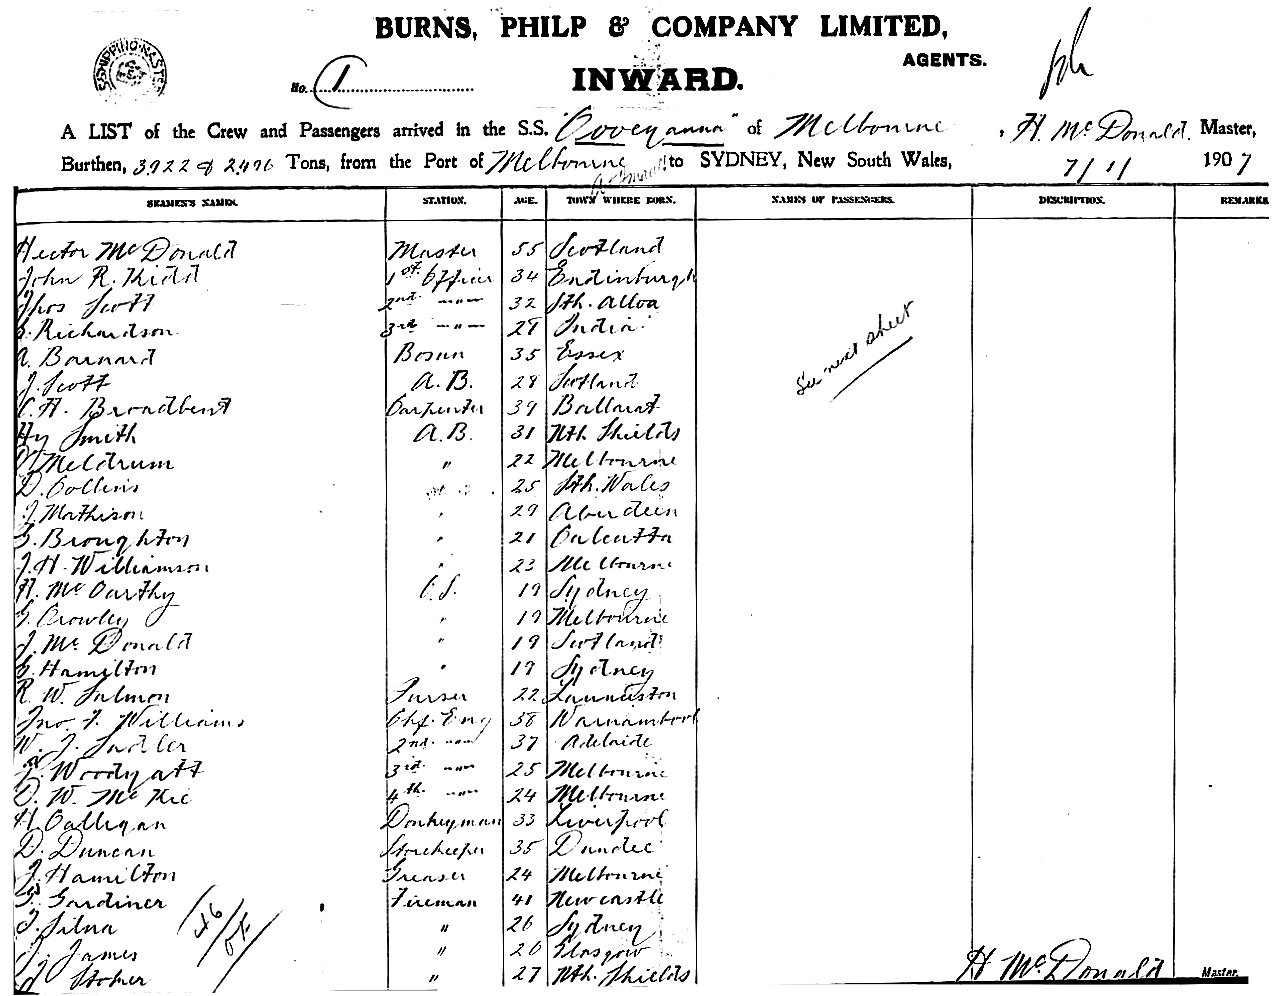 BURNS, PHILP & COMPANY LIMITED,
AGENTS.
No. 1
INWARD.
A LIST of the Crew and Passengers arrived in the S.S. "Ooveyanna" of Melbourne, H. McDonald Master,
Burthen, 3922 & 2496 Tons, from the Port of Melbourne to SYDNEY, New South Wales, 7/11 1907
SEAMEN'S NAMES. STATION. AGE. TOWN WHERE BORN. NAMES OF PASSENGERS. DESCRIPTION. REMARKS
Hector McDonald Master 55 Scotland
John R. Kidd 1st Officer 34 Endinburgh
Thos Scott 2nd " 32 Sth. Alloa
Richardson 3rd " India
A. Barnard Bosun 35 Essex
See next sheet
J. Scott A.B. 28 Scotland
C. H. Broadbent Carpenter 39 Ballarat
Hy Smith A.B. 31 Nth Shields
Meldrum " 22 Melbourne
D. Collins 25 Sth. Wales
J. Mathison " 29 Aberdeen
G. Broughton " 21 Calcutta
J. H. Williamson " 23 Melbourne
H. McCarthy O.S. 19 Sydney
G. Crowley " 19 Melbourne
J. McDonald " 19 Scotland
G. Hamilton " 19 Sydney
R. W. Salmon Purser 22 Launceston
Jno. F. Williams Chf. Eng 38 Warnambool
W. J. Sadler 2nd " 37 Adelaide
Woodyatt 3rd " 25 Melbourne
D. W. McKie 4th " 24 Melbourne
H. Calligan Donkeyman 33 Liverpool
D. Duncan Storekeeper 35 Dundee
J. Hamilton Greaser 24 Melbourne
G. Gardiner Fireman 41 Newcastle
Silva " 26 Sydney
J. James " 26 Glasgow
Stoker " 27 Nth. Shields
H McDonald Master.